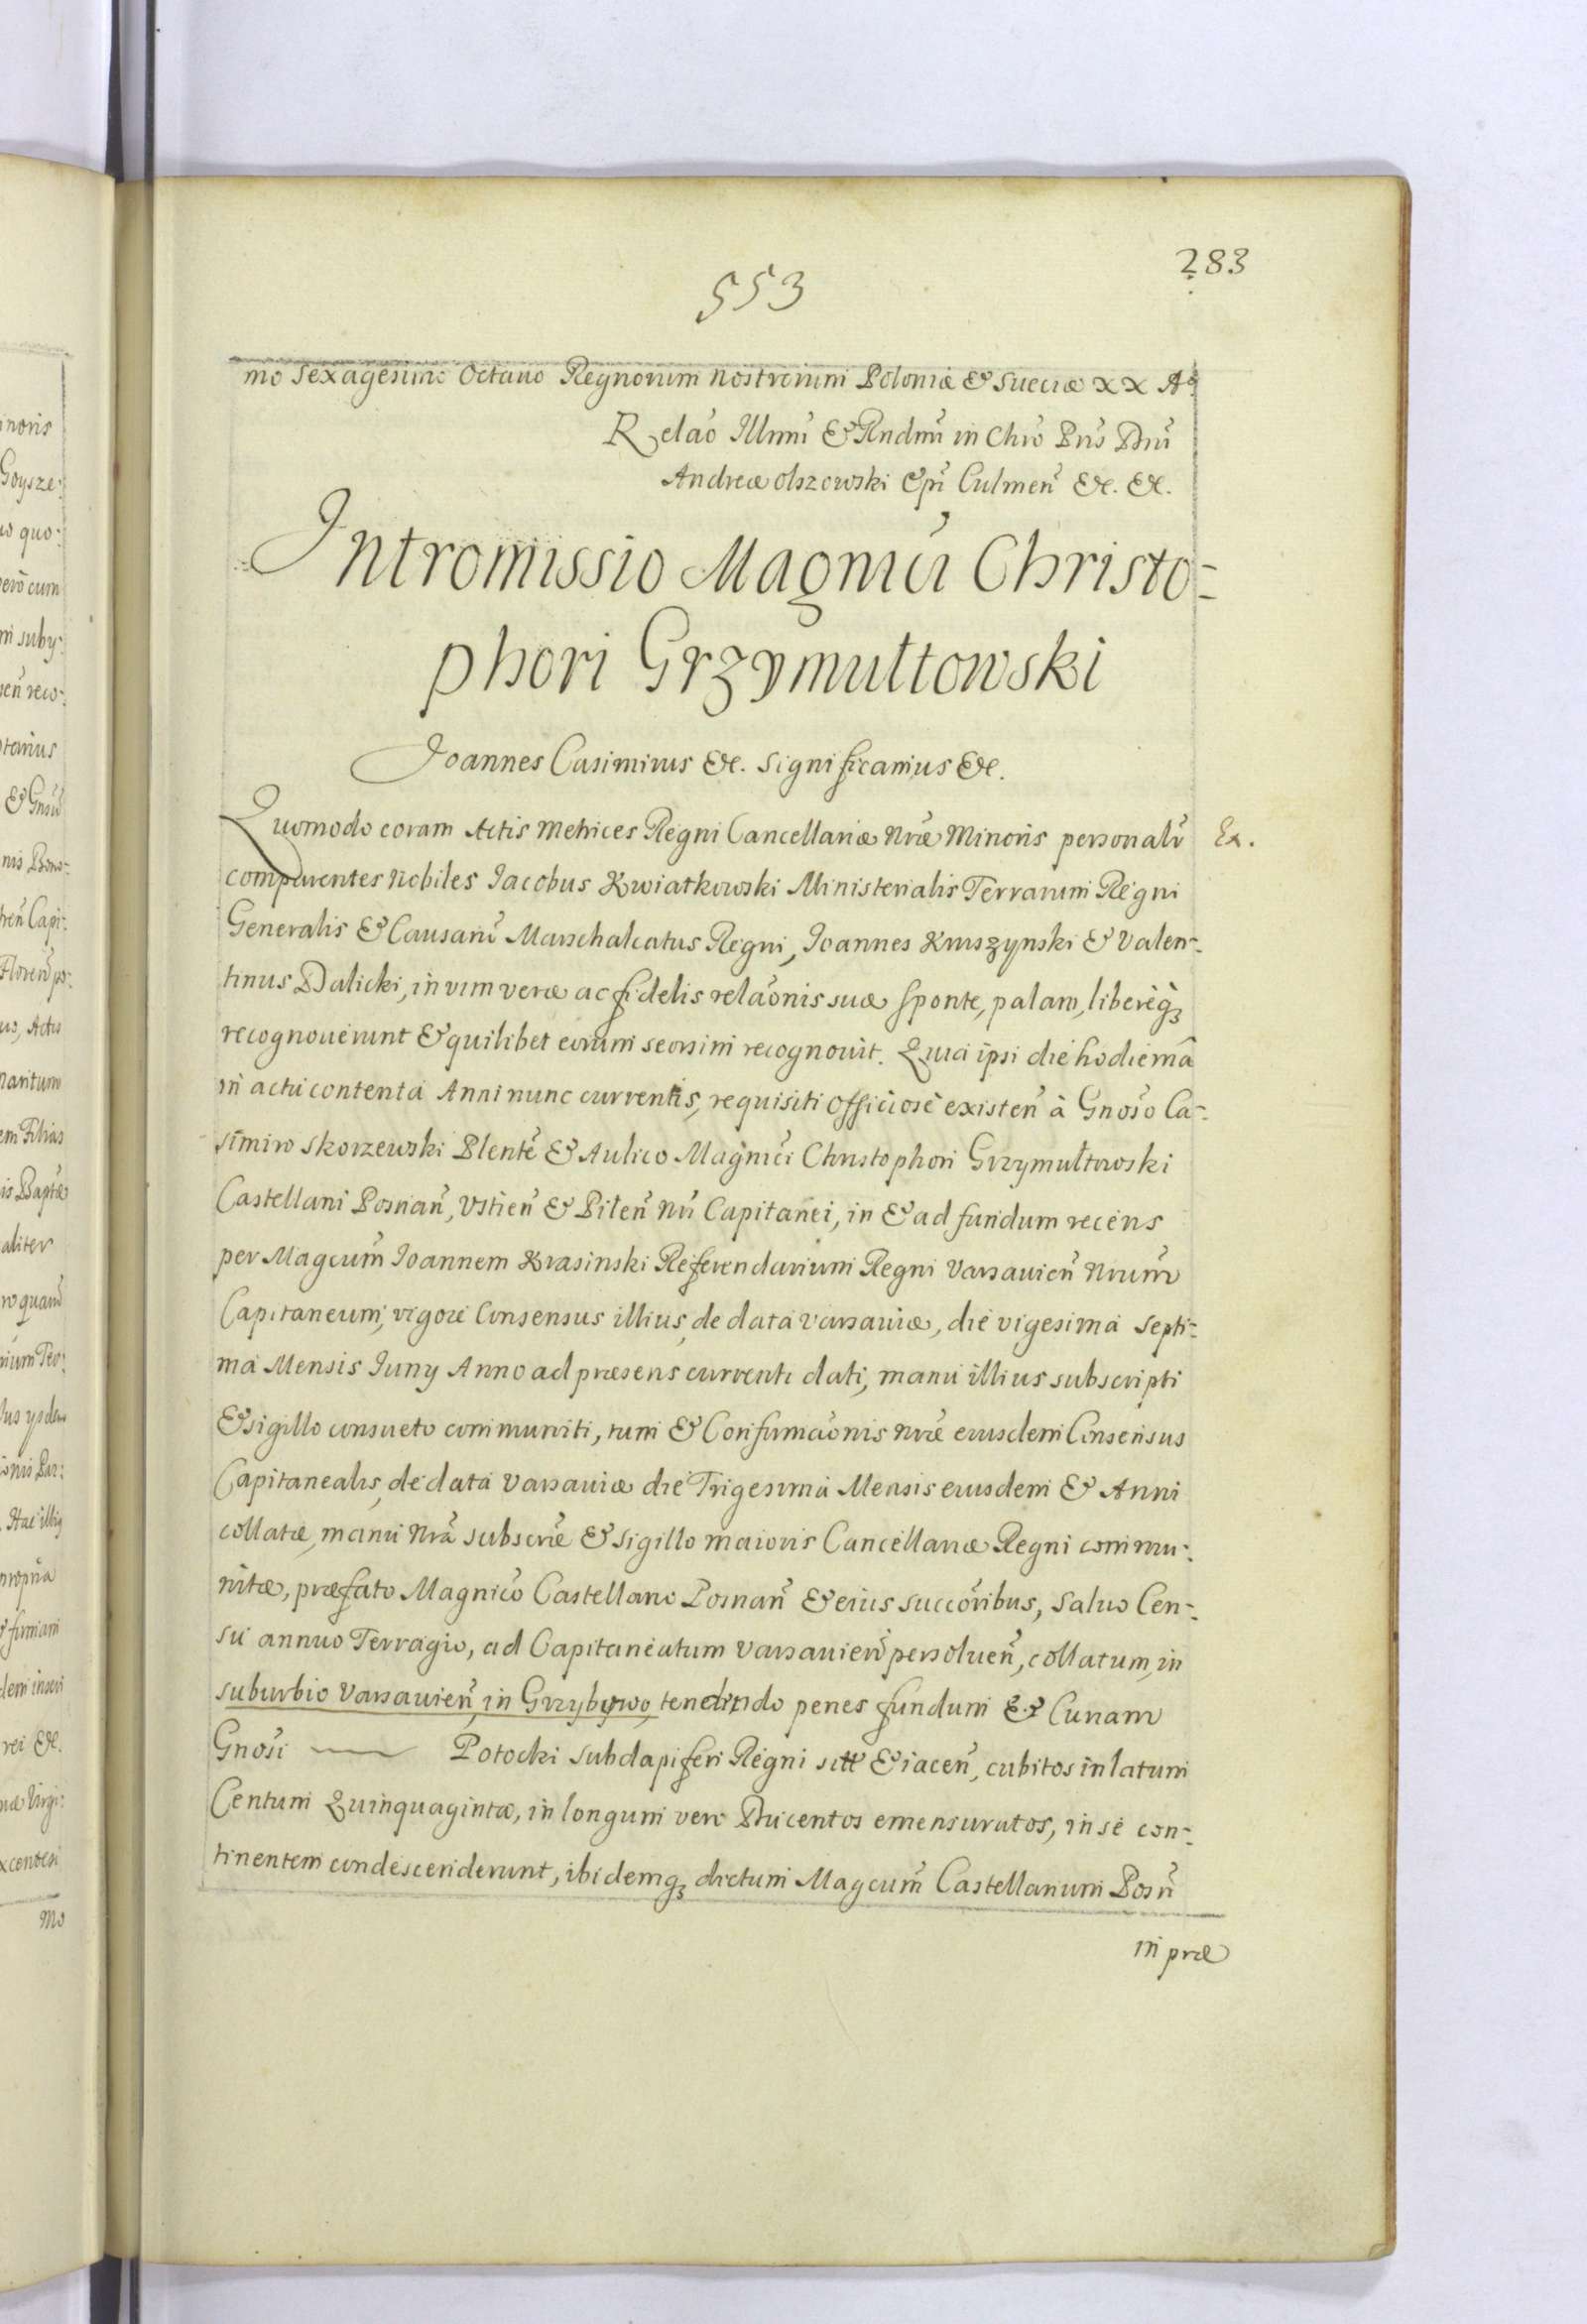 283
553
mo sexagesimo Octauo Regnorum nostrorum Poloniæ & Sueciæ XX Aº
Relaõ Illmi & Rndmi in Chrõ Pris Dni
Andreæ Olszowski Epi Culmen̄ &c. &c.
Intromissio Magnici Christo=
phori Grzymułtowski
Joannes Casimirus &c. Significamus &c.
Quomodo coram Actis Metrices Regni Cancellariæ Nræ Minoris personalr̄
Ex.
comparentes Nobiles Jacobus Kwiatkowski Ministerialis Terrarum Regni
Generalis & Causarū Marschalcatus Regni, Joannes Kruszynski & Valen=
tinus Dalicki, in vim veræ ac fidelis relaõnis suæ sponte, palam, liberèqꝫ
recognouerunt & quilibet eorum seorsim recognouit. Quia ipsi die hodiernâ
in actu contentâ Anni nunc currentis, requisiti officiosè existen̄ à Gnoso Ca=
simiro Skorzewski Plentē & Aulico Magnici Christophori Grzymułtowski
Castellani Posnan̄, Ustien̄ & Pilen̄ Nri Capitanei, in & ad fundum recens
per Magcum̄ Joannem Krasinski Referendarium Regni Varsauien̄ Nrum̄
Capitaneum, vigore Consensus illius, de data Varsauiæ, die vigesima septi=
ma Mensis Juny Anno ad præsens currenti dati, manu illius subscripti
& sigillo consueto communiti, tum & Confirmaõnis Nræ eiusdem Consensus
Capitanealis, de data Varsauiæ die Trigesima Mensis eiusdem & Anni
collatæ, manu Nrâ subscrē & Sigillo maioris Cancellariæ Regni commu=
nitæ, præfato Magnico Castellano Posnan̄ & eius succoribus, saluo Cen=
su annuo Terragio, ad Capitaneatum Varsauien̄ persoluen̄, collatum, in
suburbio Varsauien̄, in Grzybowo, tendendo penes fundum & Curiam
Gnosi Potocki Subdapiferi Regni sitt & iacen̄, cubitos in latum
Centum Quinquaginta, in longum vero Ducentos emensuratos, in se con=
tinentem condescenderunt, ibidemqꝫ dictum Magcum̄ Castellanum Posn̄
in præ